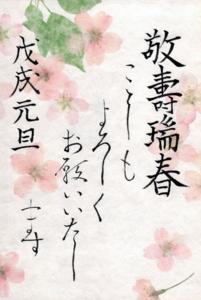 敬壽瑞春
ことしも
よろしく
お願いいたし
ます
戊戌元旦